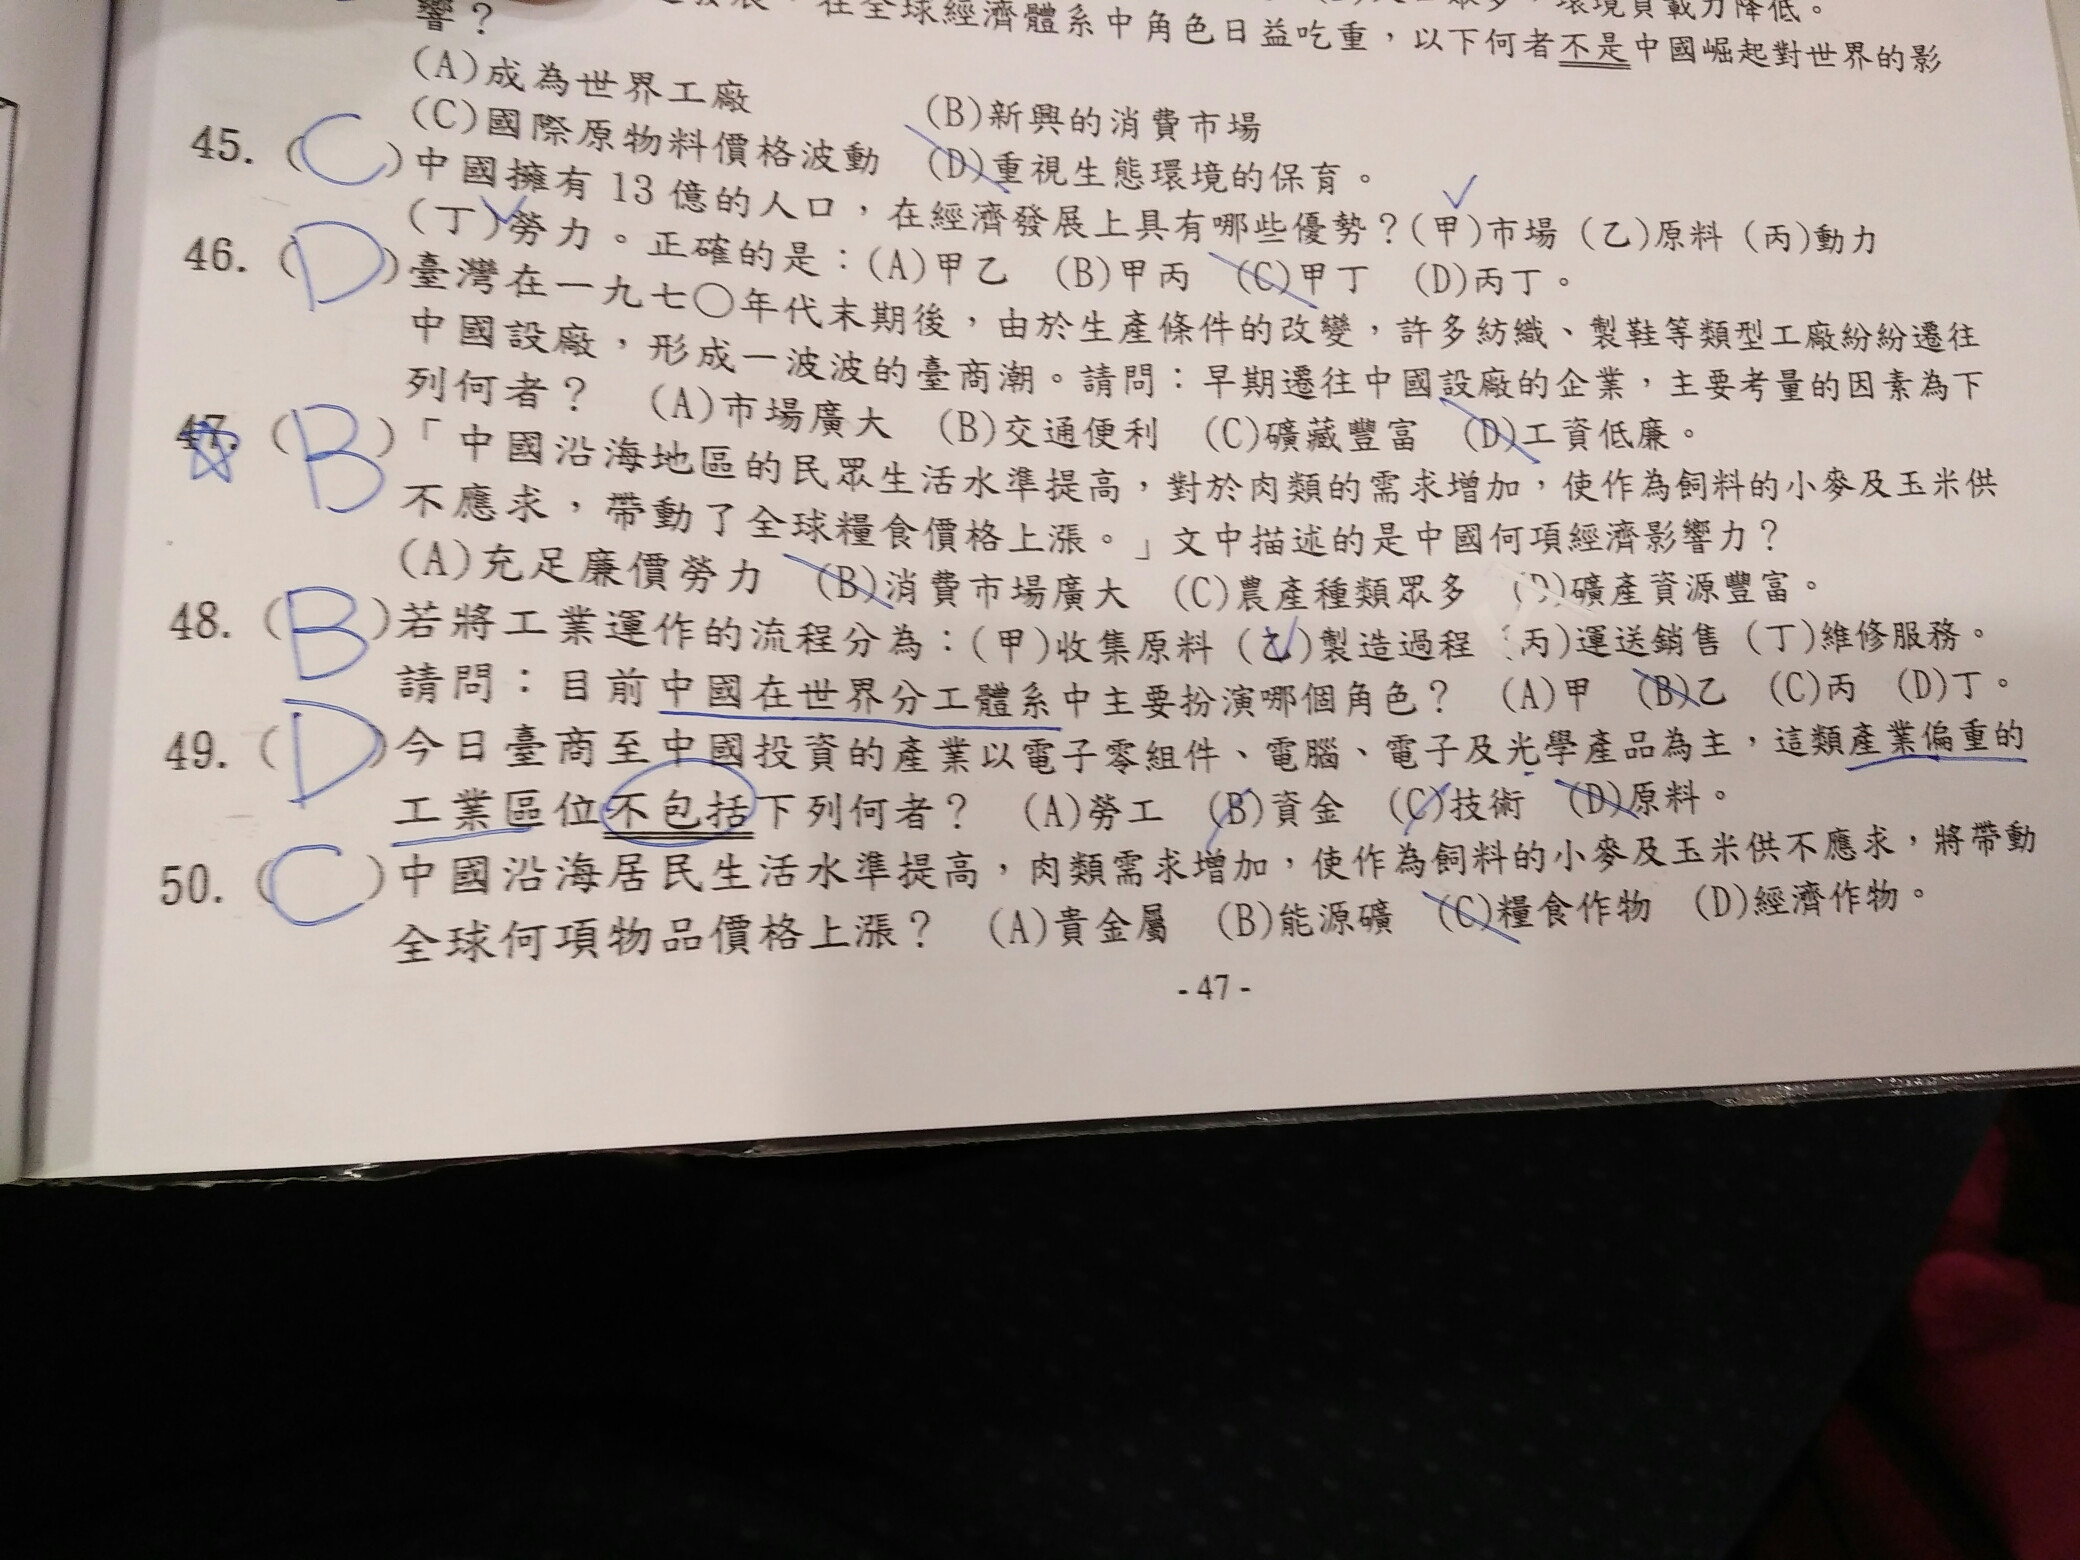 發展，在全球經濟體系中角色日益吃重，以下何者不是中國崛起對世界的影
環境負載力降低。
響？
(A)成為世界工廠 (B)新興的消費市場
(C)國際原物料價格波動 (D)重視生態環境的保育。
45. (C)中國擁有13億的人口，在經濟發展上具有哪些優勢？(甲)市場 (乙)原料 (丙)動力
(丁)勞力。正確的是：(A)甲乙 (B)甲丙 (C)甲丁 (D)丙丁。
46. (D)臺灣在一九七〇年代末期後，由於生產條件的改變，許多紡織、製鞋等類型工廠紛紛遷往
中國設廠，形成一波波的臺商潮。請問：早期遷往中國設廠的企業，主要考量的因素為下
列何者？ (A)市場廣大 (B)交通便利 (C)礦藏豐富 (D)工資低廉。
47. (B)「中國沿海地區的民眾生活水準提高，對於肉類的需求增加，使作為飼料的小麥及玉米供
不應求，帶動了全球糧食價格上漲。」文中描述的是中國何項經濟影響力？
(A)充足廉價勞力 (B)消費市場廣大 (C)農產種類眾多 (D)礦產資源豐富。
48. (B)若將工業運作的流程分為：(甲)收集原料 (乙)製造過程 (丙)運送銷售 (丁)維修服務。
請問：目前中國在世界分工體系中主要扮演哪個角色？ (A)甲 (B)乙 (C)丙 (D)丁。
49. (D)今日臺商至中國投資的產業以電子零組件、電腦、電子及光學產品為主，這類產業偏重的
工業區位不包括下列何者？ (A)勞工 (B)資金 (C)技術 (D)原料。
50. (C)中國沿海居民生活水準提高，肉類需求增加，使作為飼料的小麥及玉米供不應求，將帶動
全球何項物品價格上漲？ (A)貴金屬 (B)能源礦 (C)糧食作物 (D)經濟作物。
-47-